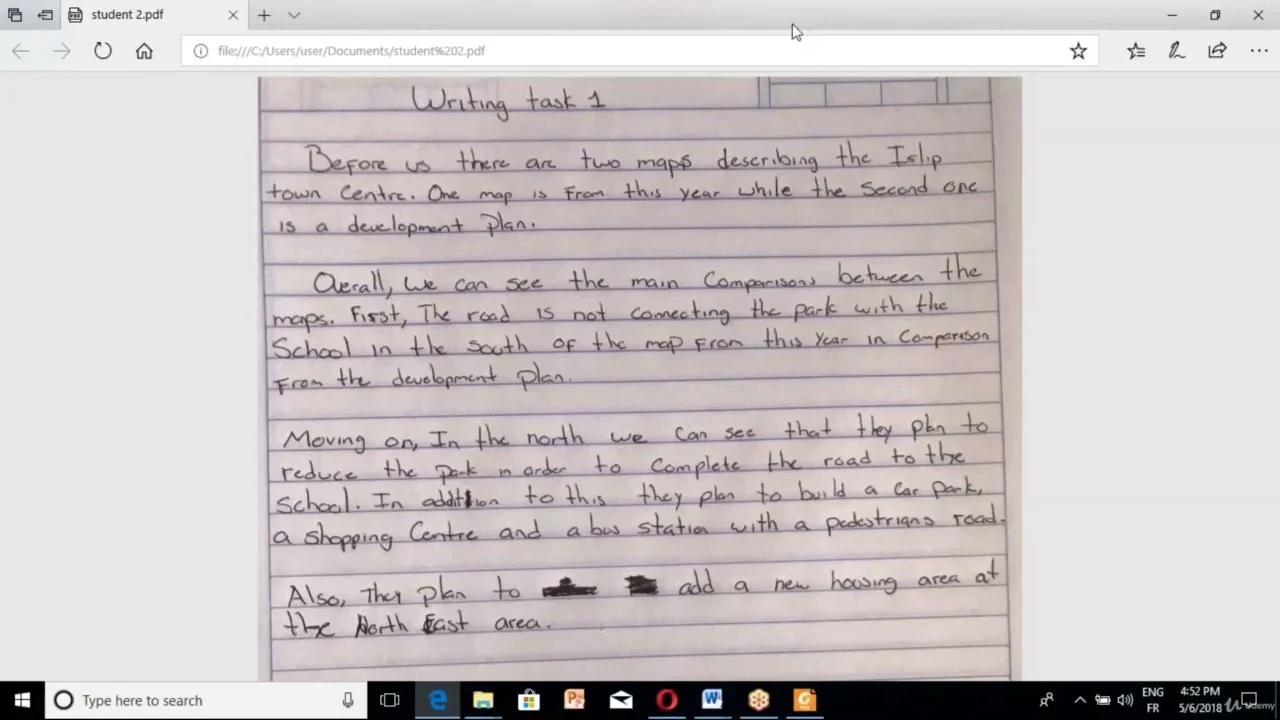 student 2.pdf
file:///C:/Users/user/Documents/student%202.pdf
Writing task 1
Before us there are two maps describing the Islip
town Centre. One map is from this year while the second one
is a development plan.
Overall, we can see the main comparisons between the
maps. First, The road is not connecting the park with the
School in the south of the map from this year in comparison
from the development plan.
Moving on, In the north we can see that they plan to
reduce the park in order to complete the road to the
school. In addition to this they plan to build a car park,
a shopping centre and a bus station with a pedestrians road.
Also, They plan to add a new housing area at
the North East area.
Type here to search
ENG
FR
4:52 PM
5/6/2018
Udemy